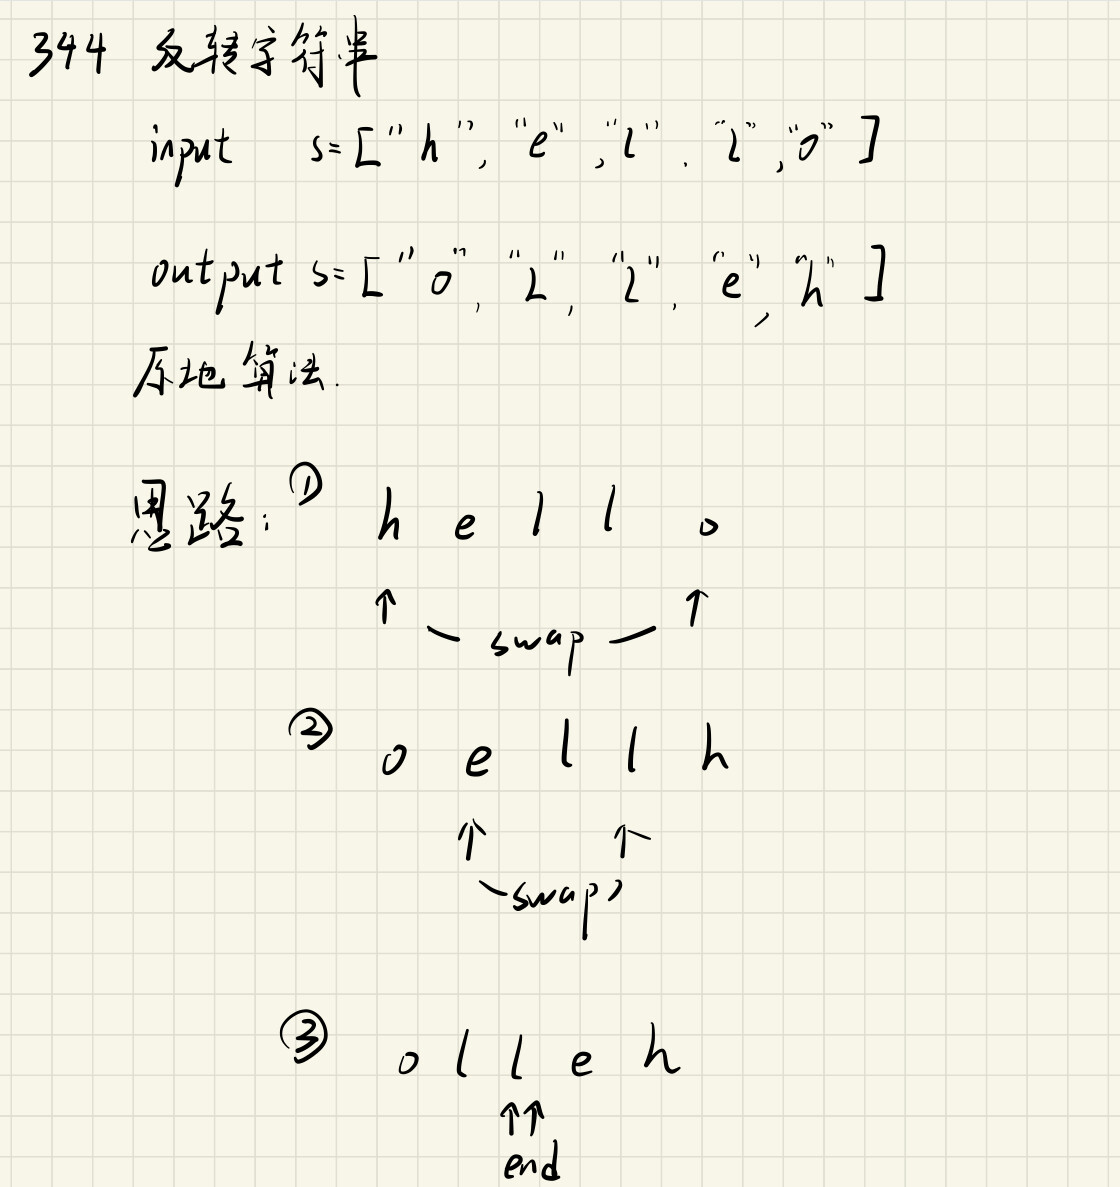 344 反转字符串
input s=["h", "e", "l", "l", "o"]
output s=["o", "L", "l", "e", "h"]
原地算法.
思路: ① h e l l o
↑ swap ↑
② o e l l h
↑ ↑
swap
③ o l l e h
↑↑
end